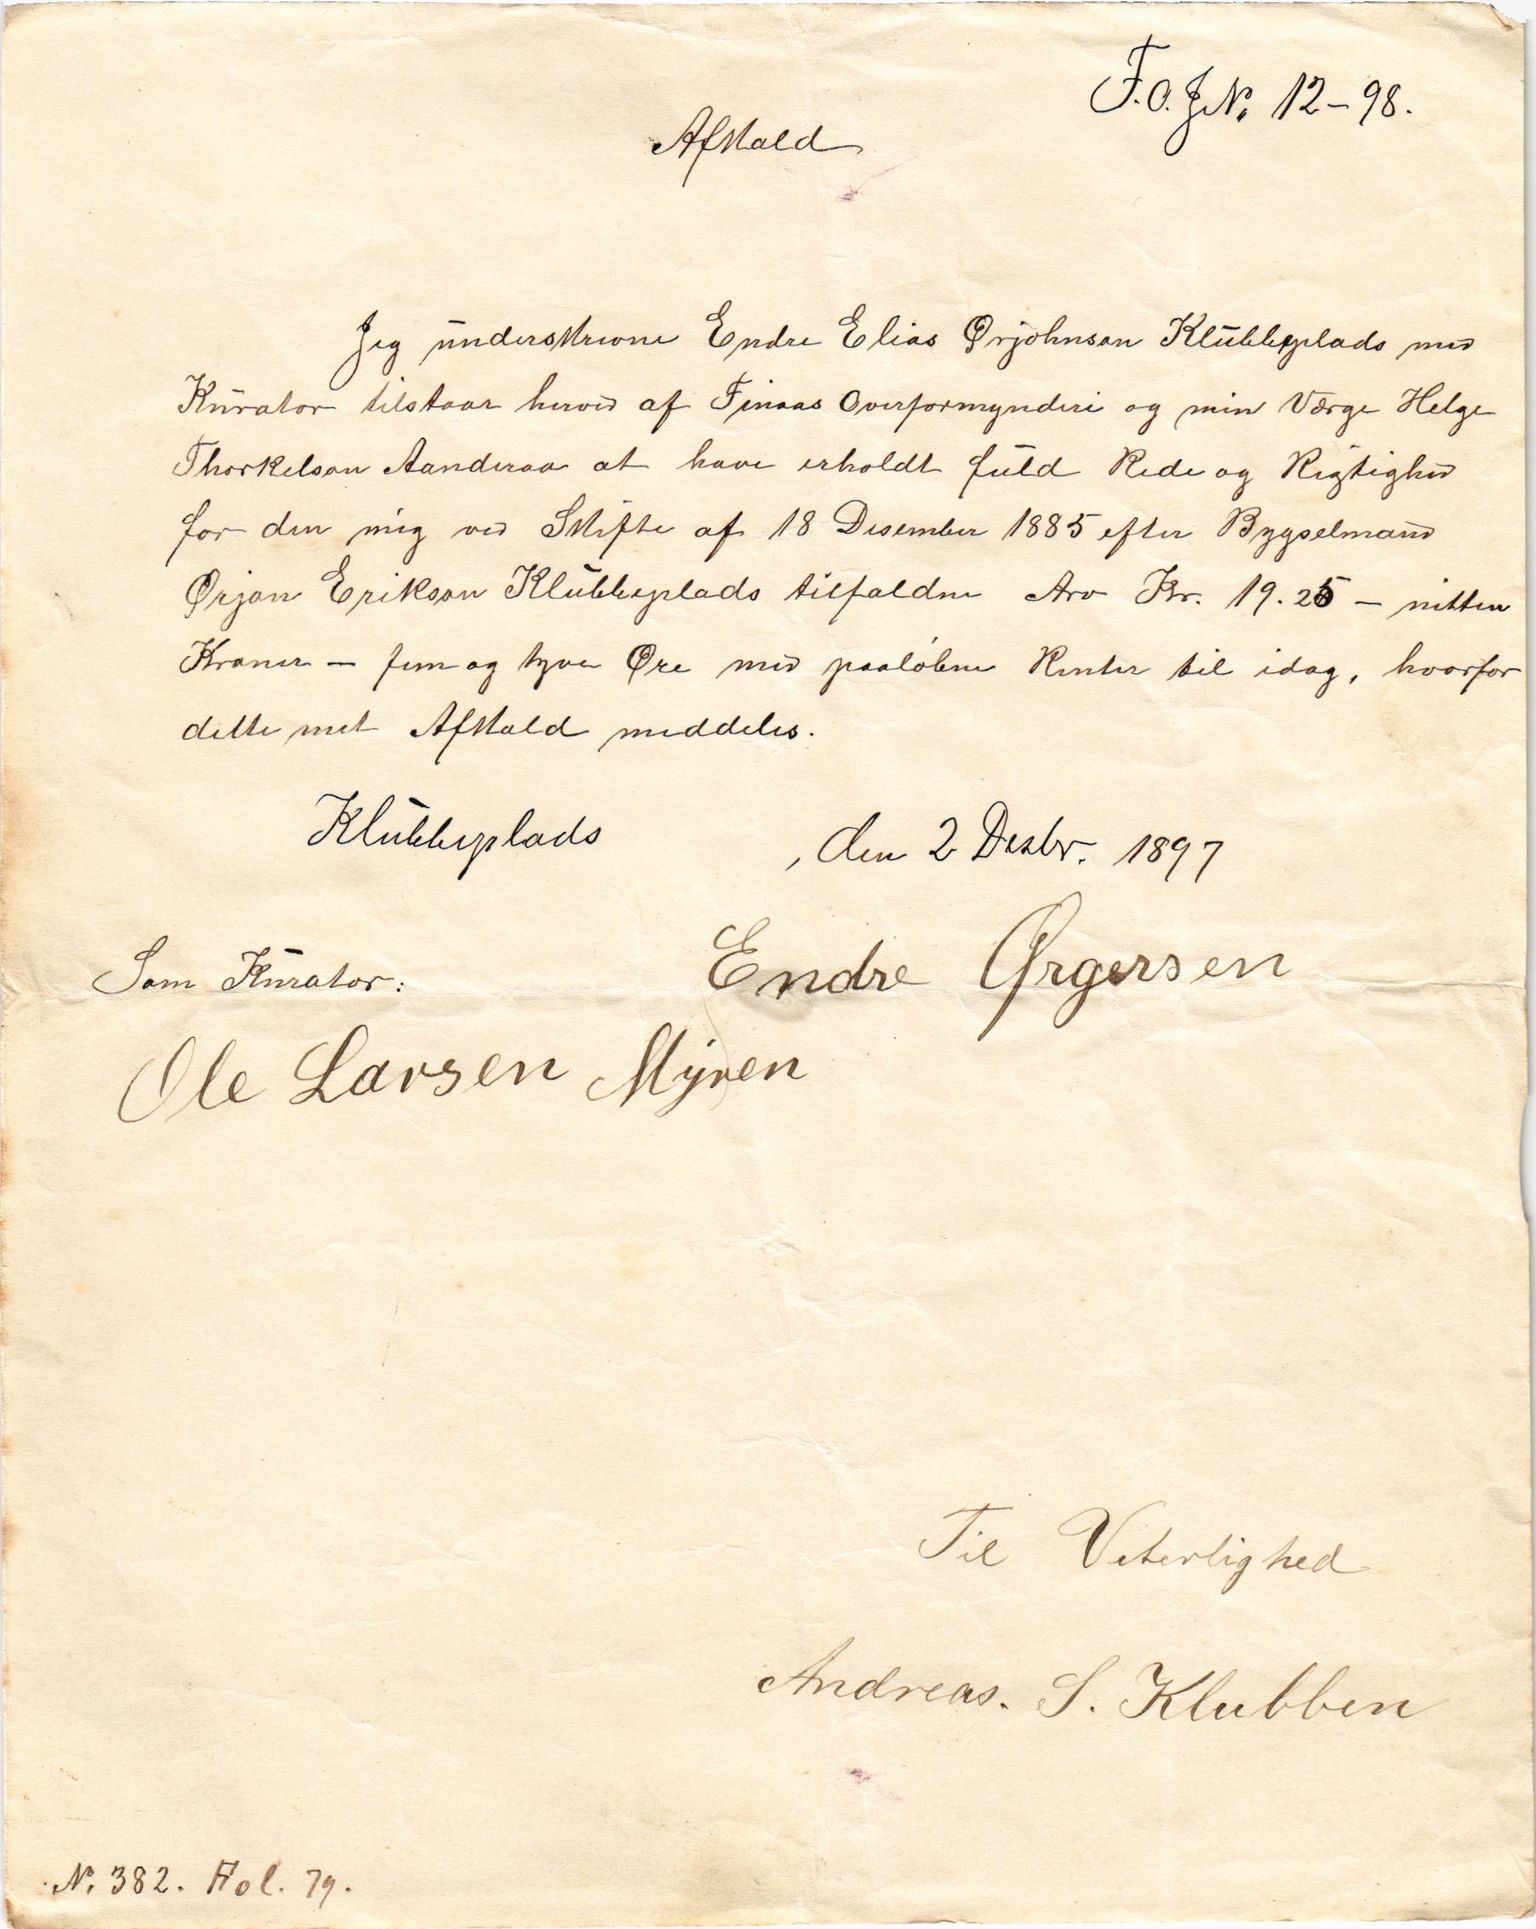 F.O.J.N. 12-98.
Afkald
Jeg underskrevne Endre Elias Ørjohnson Klubbeplads med
Kurator tilstaar herved af Finaas Overformynderi og min Værge Helge
Thorkelson Aanderaa at have erholdt fuld Rede og Rigtighed
for den mig ved Skifte af 18 Desember 1885 efter Bygselmand
Ørjan Erikson Klubbeplads tilfaldne Arv Kr. 19.25 – nitten
Kroner – fem og tyve Øre med paaløbne Renter til idag, hvorfor
dette mit Afkald meddeles.
Klubbeplads , den 2 Desbr. 1897
Endre Ørgersen
Som Kurator:
Ole Larsen Myren
Til Viterlighed
Andreas. S. Klubben
N. 382. Fol. 79.